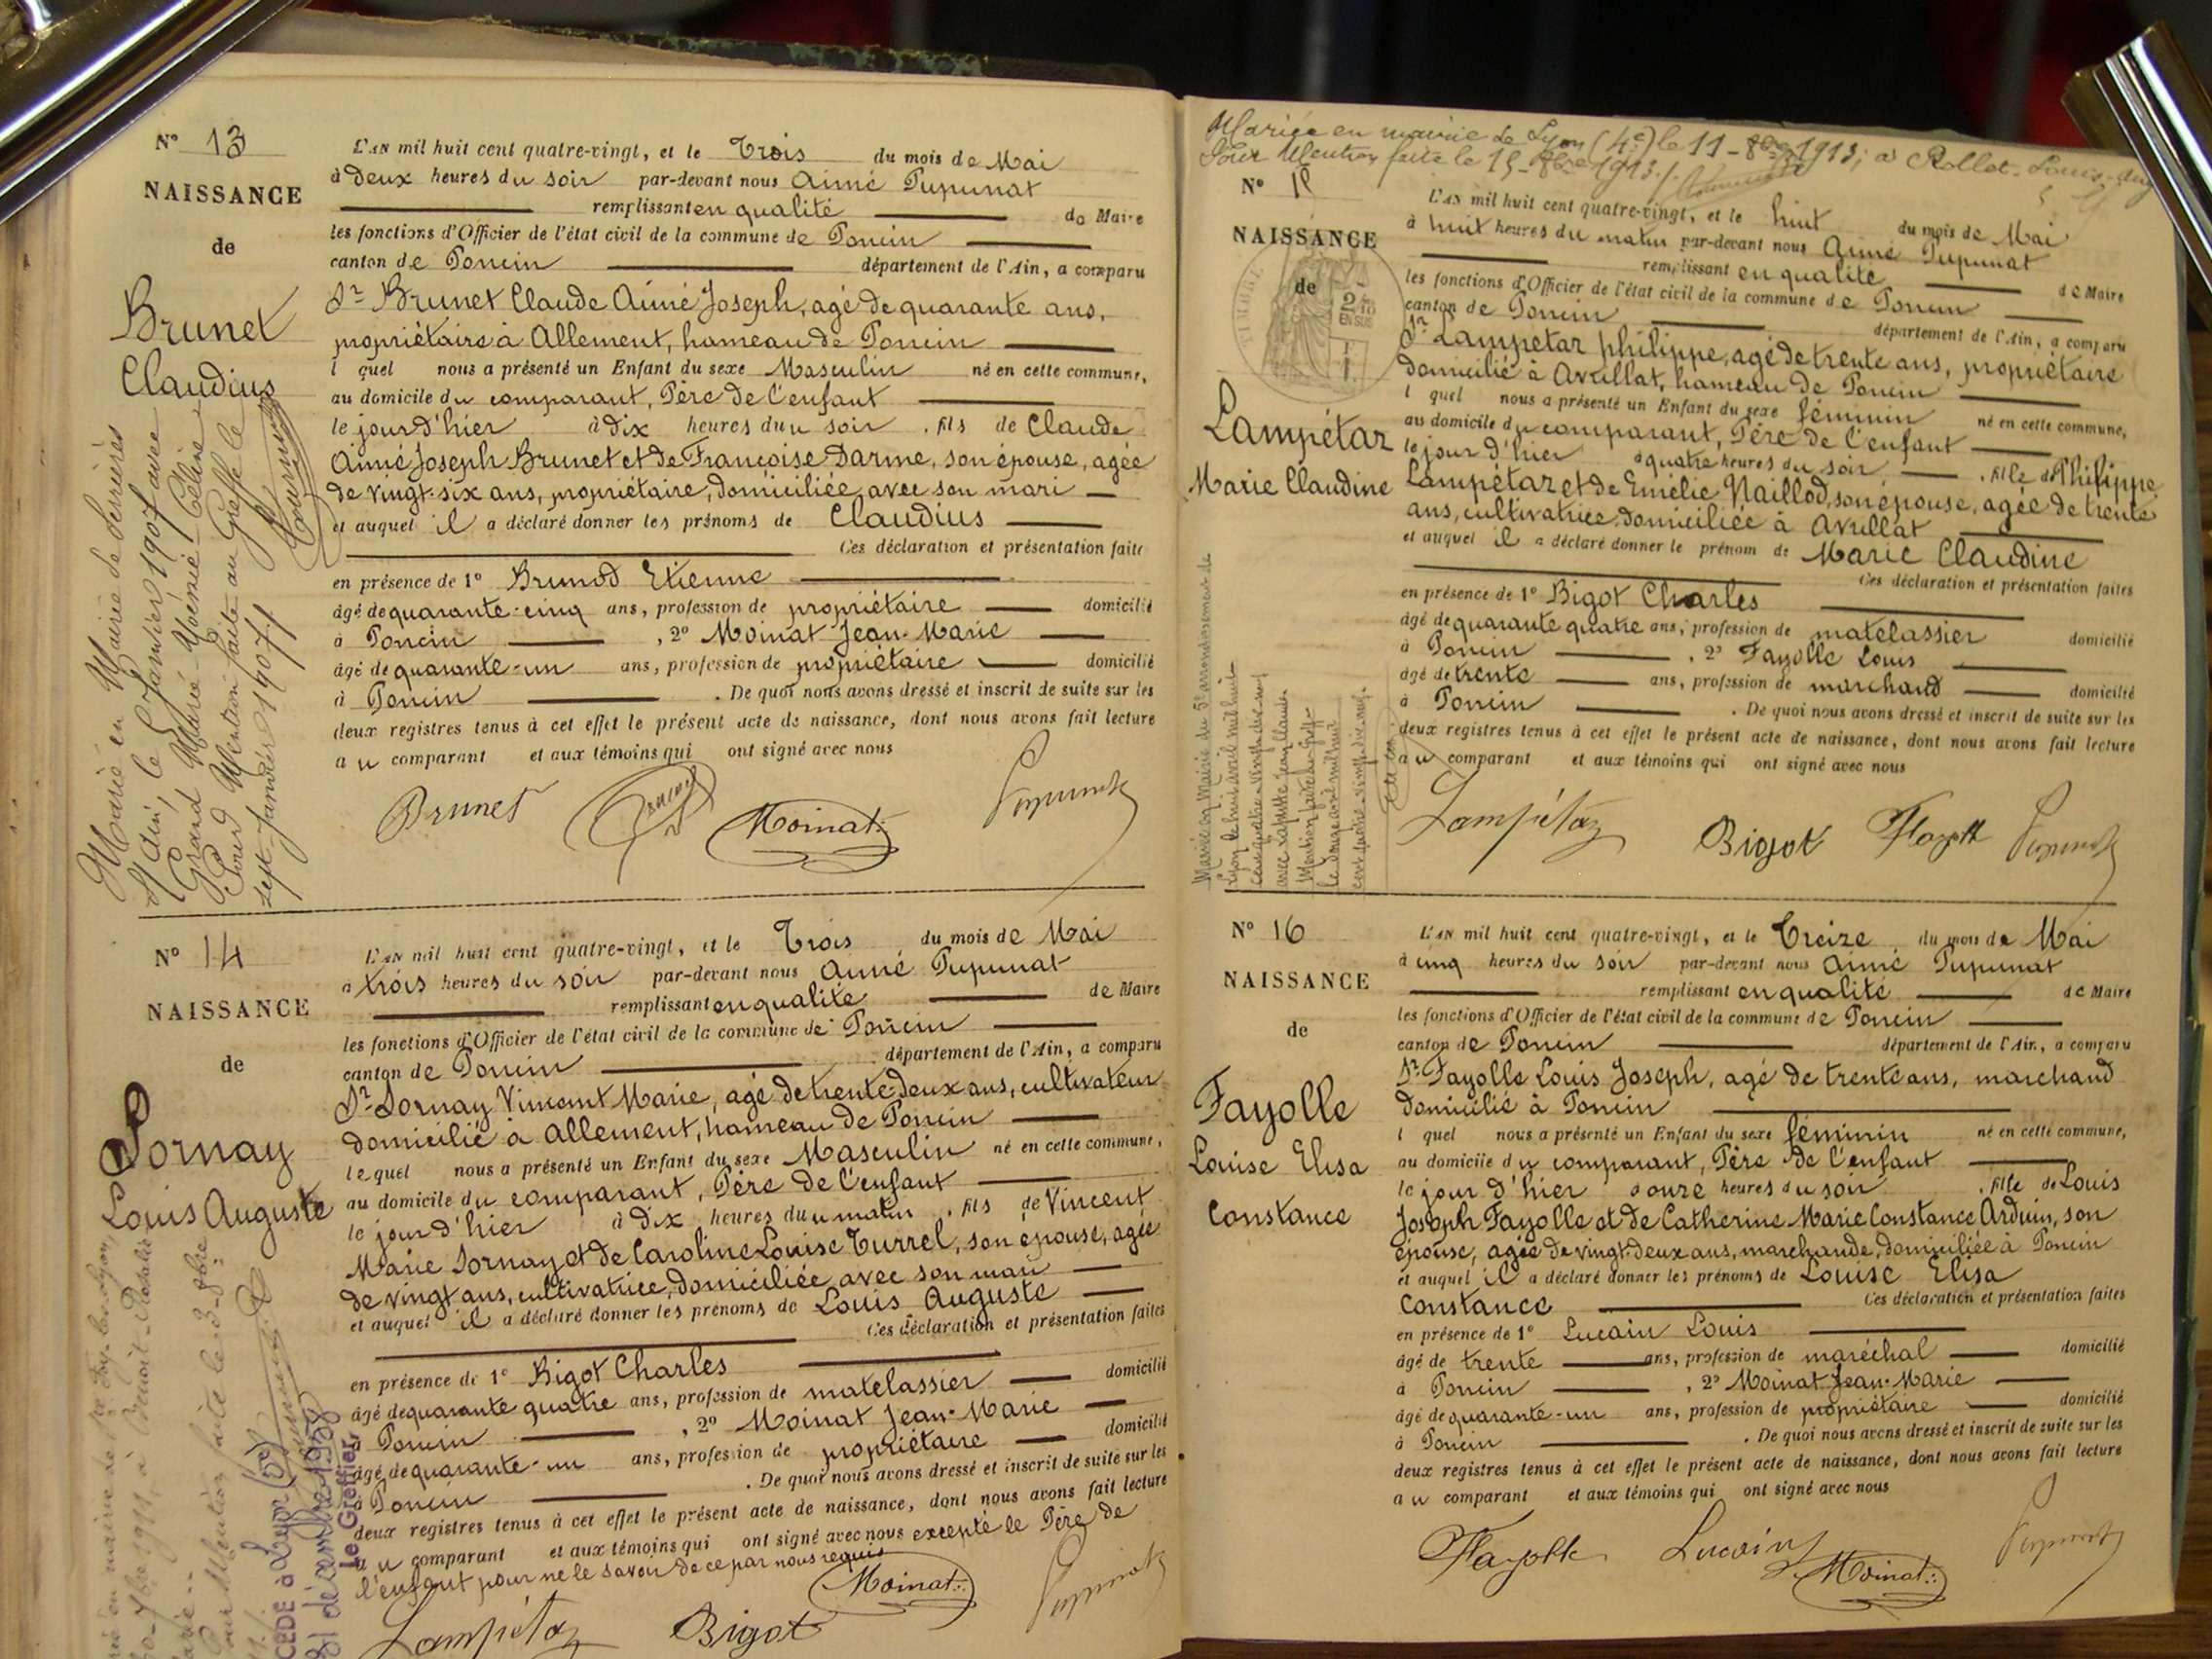 N° 13
NAISSANCE
de
Brunet
Claudius
L'AN mil huit cent quatre-vingt, et le Trois du mois de Mai
à deux heures du soir par-devant nous Aimé Pupunat
remplissant en qualité de Maire
les fonctions d'Officier de l'état civil de la commune de Poncin
canton de Poncin département de l'Ain, a comparu
Sr Brunet Claude Aimé Joseph, agé de quarante ans,
propriétaire à Allement, hameau de Poncin
l quel nous a présenté un Enfant du sexe Masculin né en cette commune,
au domicile du comparant, Père de l'enfant
le jour d'hier à dix heures du soir, fils de Claude
Aimé Joseph Brunet et de Françoise Darme, son épouse, agée
de vingt-six ans, propriétaire, domiciliée avec son mari
et auquel il a déclaré donner les prénoms de Claudius
Ces déclaration et présentation faite
en présence de 1° Brunod Etienne
âgé de quarante-cinq ans, profession de propriétaire domicilié
à Poncin, 2° Moinat Jean-Marie
âgé de quarante-un ans, profession de propriétaire domicilié
à Poncin. De quoi nous avons dressé et inscrit de suite sur les
deux registres tenus à cet effet le présent acte de naissance, dont nous avons fait lecture
au comparant et aux témoins qui ont signé avec nous
Brunet Moinat
Marié en Mairie de Serrières
s/ Ain, le 5 Janvier 1907 avec
Girard Marie
Pour Mention faite au Greffe le
sept Janvier 1907
N° 14
NAISSANCE
de
Sornay
Louis Auguste
L'AN mil huit cent quatre-vingt, et le Trois du mois de Mai
à trois heures du soir par-devant nous Aimé Pupunat
remplissant en qualité de Maire
les fonctions d'Officier de l'état civil de la commune de Poncin
canton de Poncin département de l'Ain, a comparu
Sr Sornay Vincent Marie, agé de trente-deux ans, cultivateur
domicilié à Allement, hameau de Poncin
lequel nous a présenté un Enfant du sexe Masculin né en cette commune,
au domicile du comparant, Père de l'enfant
le jour d'hier à dix heures du matin, fils de Vincent
Marie Sornay et de Caroline Louise Turrel, son épouse, agée
de vingt ans, cultivatrice, domiciliée avec son mari
et auquel il a déclaré donner les prénoms de Louis Auguste
Ces déclaration et présentation faites
en présence de 1° Bigot Charles domicilié
âgé de quarante quatre ans, profession de matelassier
à Poncin, 2° Moinat Jean-Marie domicilié
âgé de quarante-un ans, profession de propriétaire
à Poncin. De quoi nous avons dressé et inscrit de suite sur les
deux registres tenus à cet effet le présent acte de naissance, dont nous avons fait lecture
au comparant et aux témoins qui ont signé avec nous excepté le Père de
l'enfant pour ne le savoir de ce par nous requis
Moinat
Lampétaz Bigot
Mention faite le 3
à Lyon
31 décembre 1958
Le Greffier,
Mariée en mairie de Lyon (4e) le 11 - 8bre 1913; à Rollot Louis
Pour Mention faite le 15 - 8bre 1913
N° 15
NAISSANCE
de
Lampétaz
Marie Claudine
L'AN mil huit cent quatre-vingt, et le huit du mois de Mai
à huit heures du matin par-devant nous Aimé Pupunat
remplissant en qualité de Maire
les fonctions d'Officier de l'état civil de la commune de Poncin
canton de Poncin département de l'Ain, a comparu
Sr Lampétaz philippe, agé de trente ans, propriétaire
domicilié à Avrillat, hameau de Poncin
l quel nous a présenté un Enfant du sexe féminin né en cette commune,
au domicile du comparant, Père de l'enfant
le jour d'hier à quatre heures du soir, fille de Philippe
Lampétaz et de Emélie Naillod, son épouse, agée de trente
ans, cultivatrice, domiciliée à Avrillat
et auquel il a déclaré donner le prénom de Marie Claudine
Ces déclaration et présentation faites
en présence de 1° Bigot Charles
âgé de quarante quatre ans, profession de matelassier domicilié
à Poncin, 2° Fayolle Louis
âgé de trente ans, profession de marchand domicilié
à Poncin. De quoi nous avons dressé et inscrit de suite sur les
deux registres tenus à cet effet le présent acte de naissance, dont nous avons fait lecture
au comparant et aux témoins qui ont signé avec nous
Lampétaz Bigot Fayolle
Mariée en Mairie du 5e arrondissement de
Lyon le huit avril mil neuf
cent vingt-neuf
N° 16
NAISSANCE
de
Fayolle
Louise Elisa
Constance
L'AN mil huit cent quatre-vingt, et le Treize du mois de Mai
à cinq heures du soir par-devant nous Aimé Pupunat
remplissant en qualité de Maire
les fonctions d'Officier de l'état civil de la commune de Poncin
canton de Poncin département de l'Ain, a comparu
Sr Fayolle Louis Joseph, agé de trente ans, marchand
domicilié à Poncin
l quel nous a présenté un Enfant du sexe féminin né en cette commune,
au domicile du comparant, Père de l'enfant
le jour d'hier à onze heures du soir, fille de Louis
Joseph Fayolle et de Catherine Marie Constance Arduin, son
épouse, agée de vingt-deux ans, marchande, domiciliée à Poncin
et auquel il a déclaré donner les prénoms de Louise Elisa
Constance Ces déclaration et présentation faites
en présence de 1° Lucain Louis
âgé de trente ans, profession de maréchal domicilié
à Poncin, 2° Moinat Jean-Marie
âgé de quarante-un ans, profession de propriétaire domicilié
à Poncin. De quoi nous avons dressé et inscrit de suite sur les
deux registres tenus à cet effet le présent acte de naissance, dont nous avons fait lecture
au comparant et aux témoins qui ont signé avec nous
Fayolle Lucain Moinat